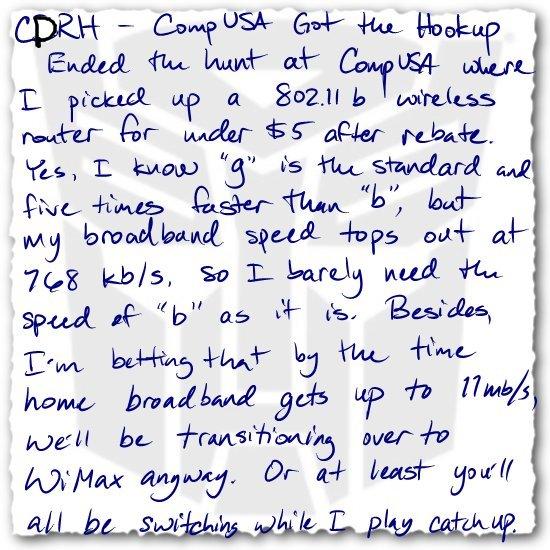 CDRH - CompUSA Got the Hookup
Ended the hunt at CompUSA where
I picked up a 802.11 b wireless
router for under $5 after rebate.
Yes, I know "g" is the standard and
five times faster than "b", but
my broadband speed tops out at
768 kb/s, so I barely need the
speed of "b" as it is. Besides,
I'm betting that by the time
home broadband gets up to 11mb/s,
we'll be transitioning over to
WiMax anyway. Or at least you'll
all be switching while I play catch up.